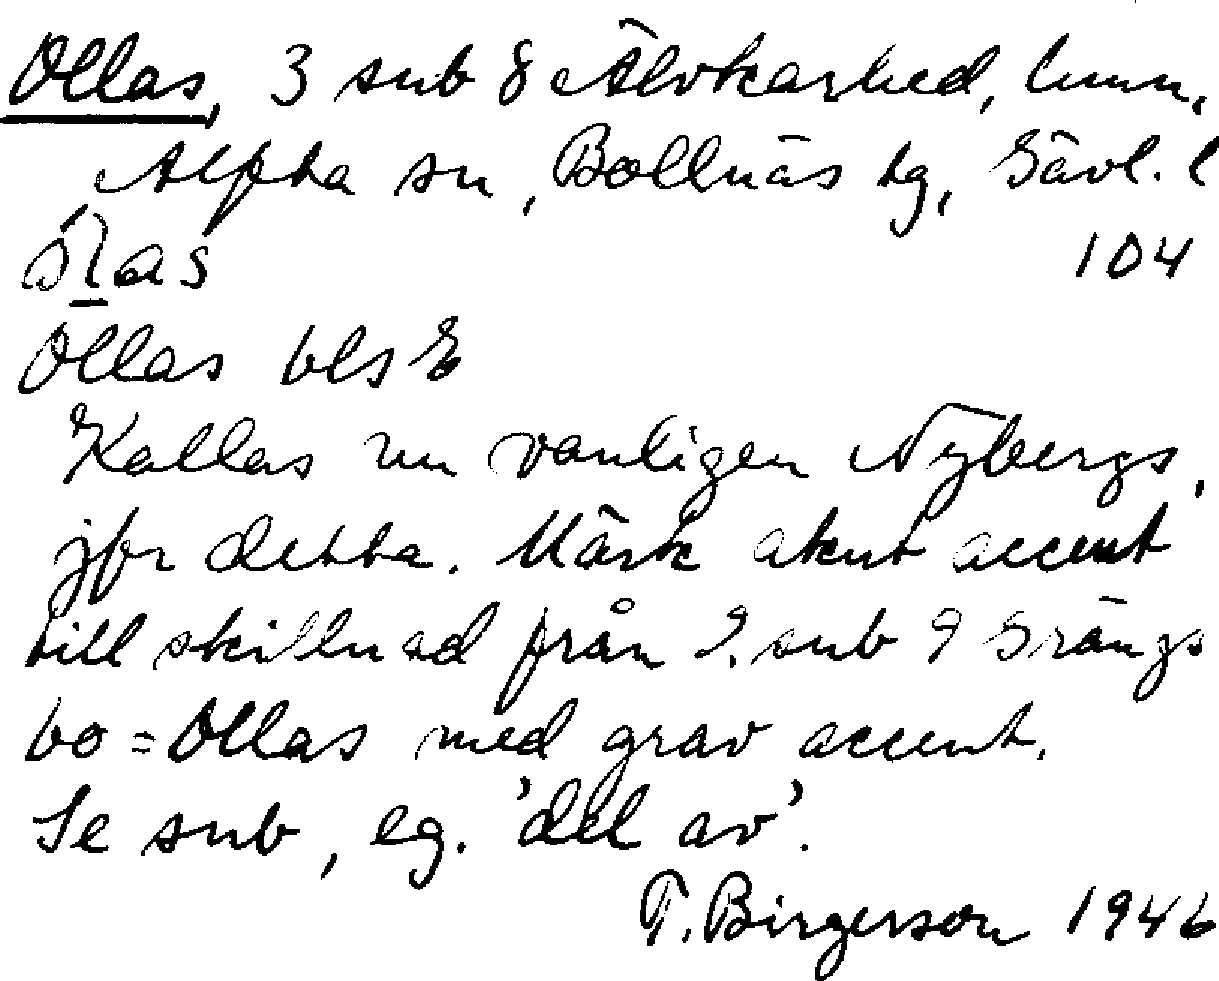 Ollas, 3 sub 8 Älvkarhed, hmn,
Alfta sn, Bollnäs tg, Gävl. l
104
Ollas bls E
Kallas nu vanligen Nybergs,
jfr detta. Märk akut accent
till skillnad från 2. sub 9 Grängs
bo = Ollas med grav accent.
Se sub, eg. 'del av'.
T. Birgerson 1946